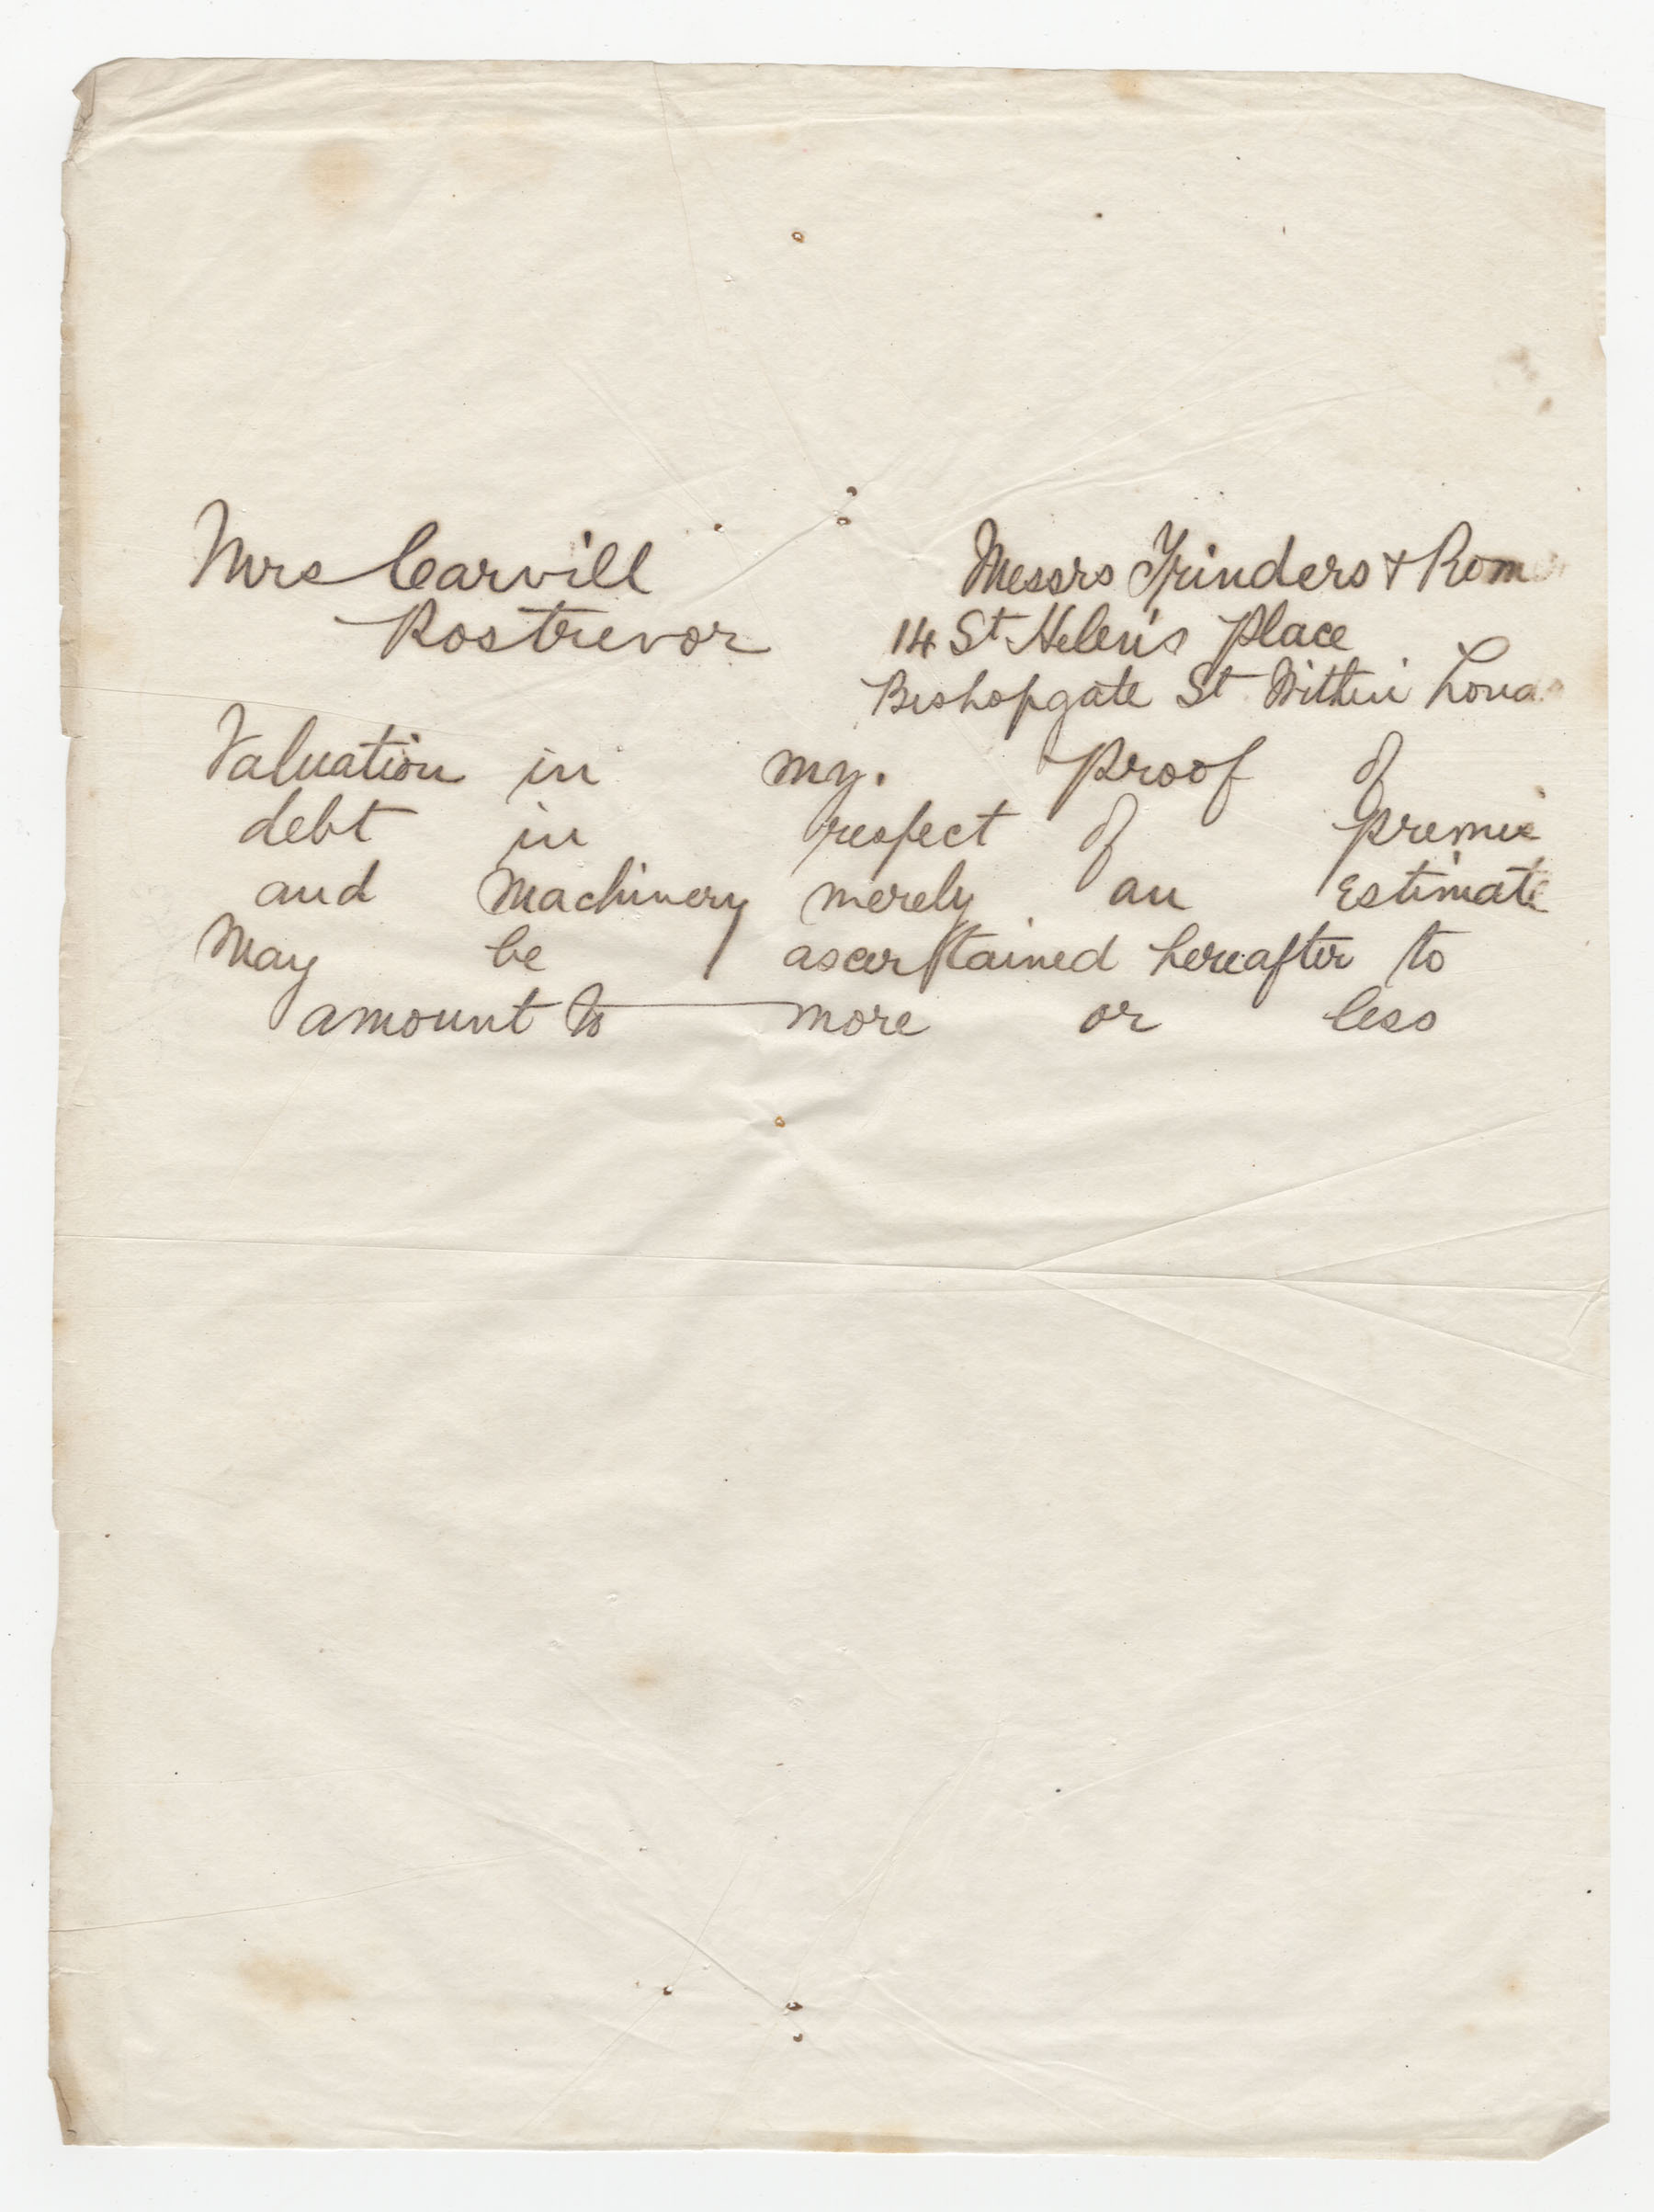 Mrs Carvill
Rostrevor
Messrs Trinders & Rom
14 St Helen's Place
Bishopgate St Within Lond
Valuation in my. proof of
debt in respect of premise
and Machinery merely an Estimate
May be ascertained hereafter to
amount to more or less